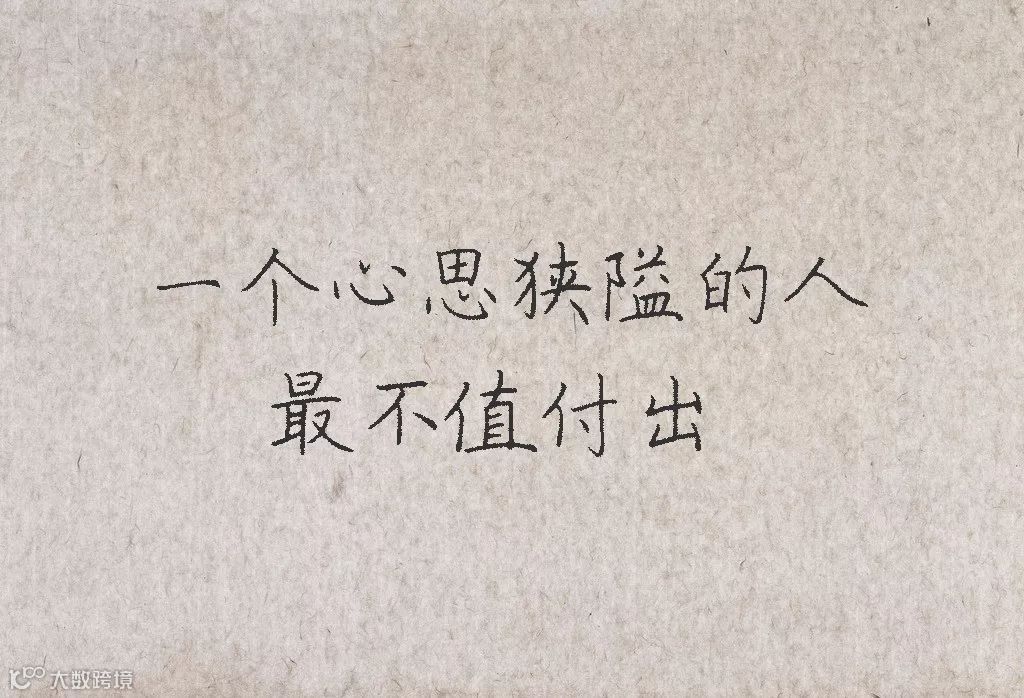 一个心思狭隘的人
最不值付出
大数跨境